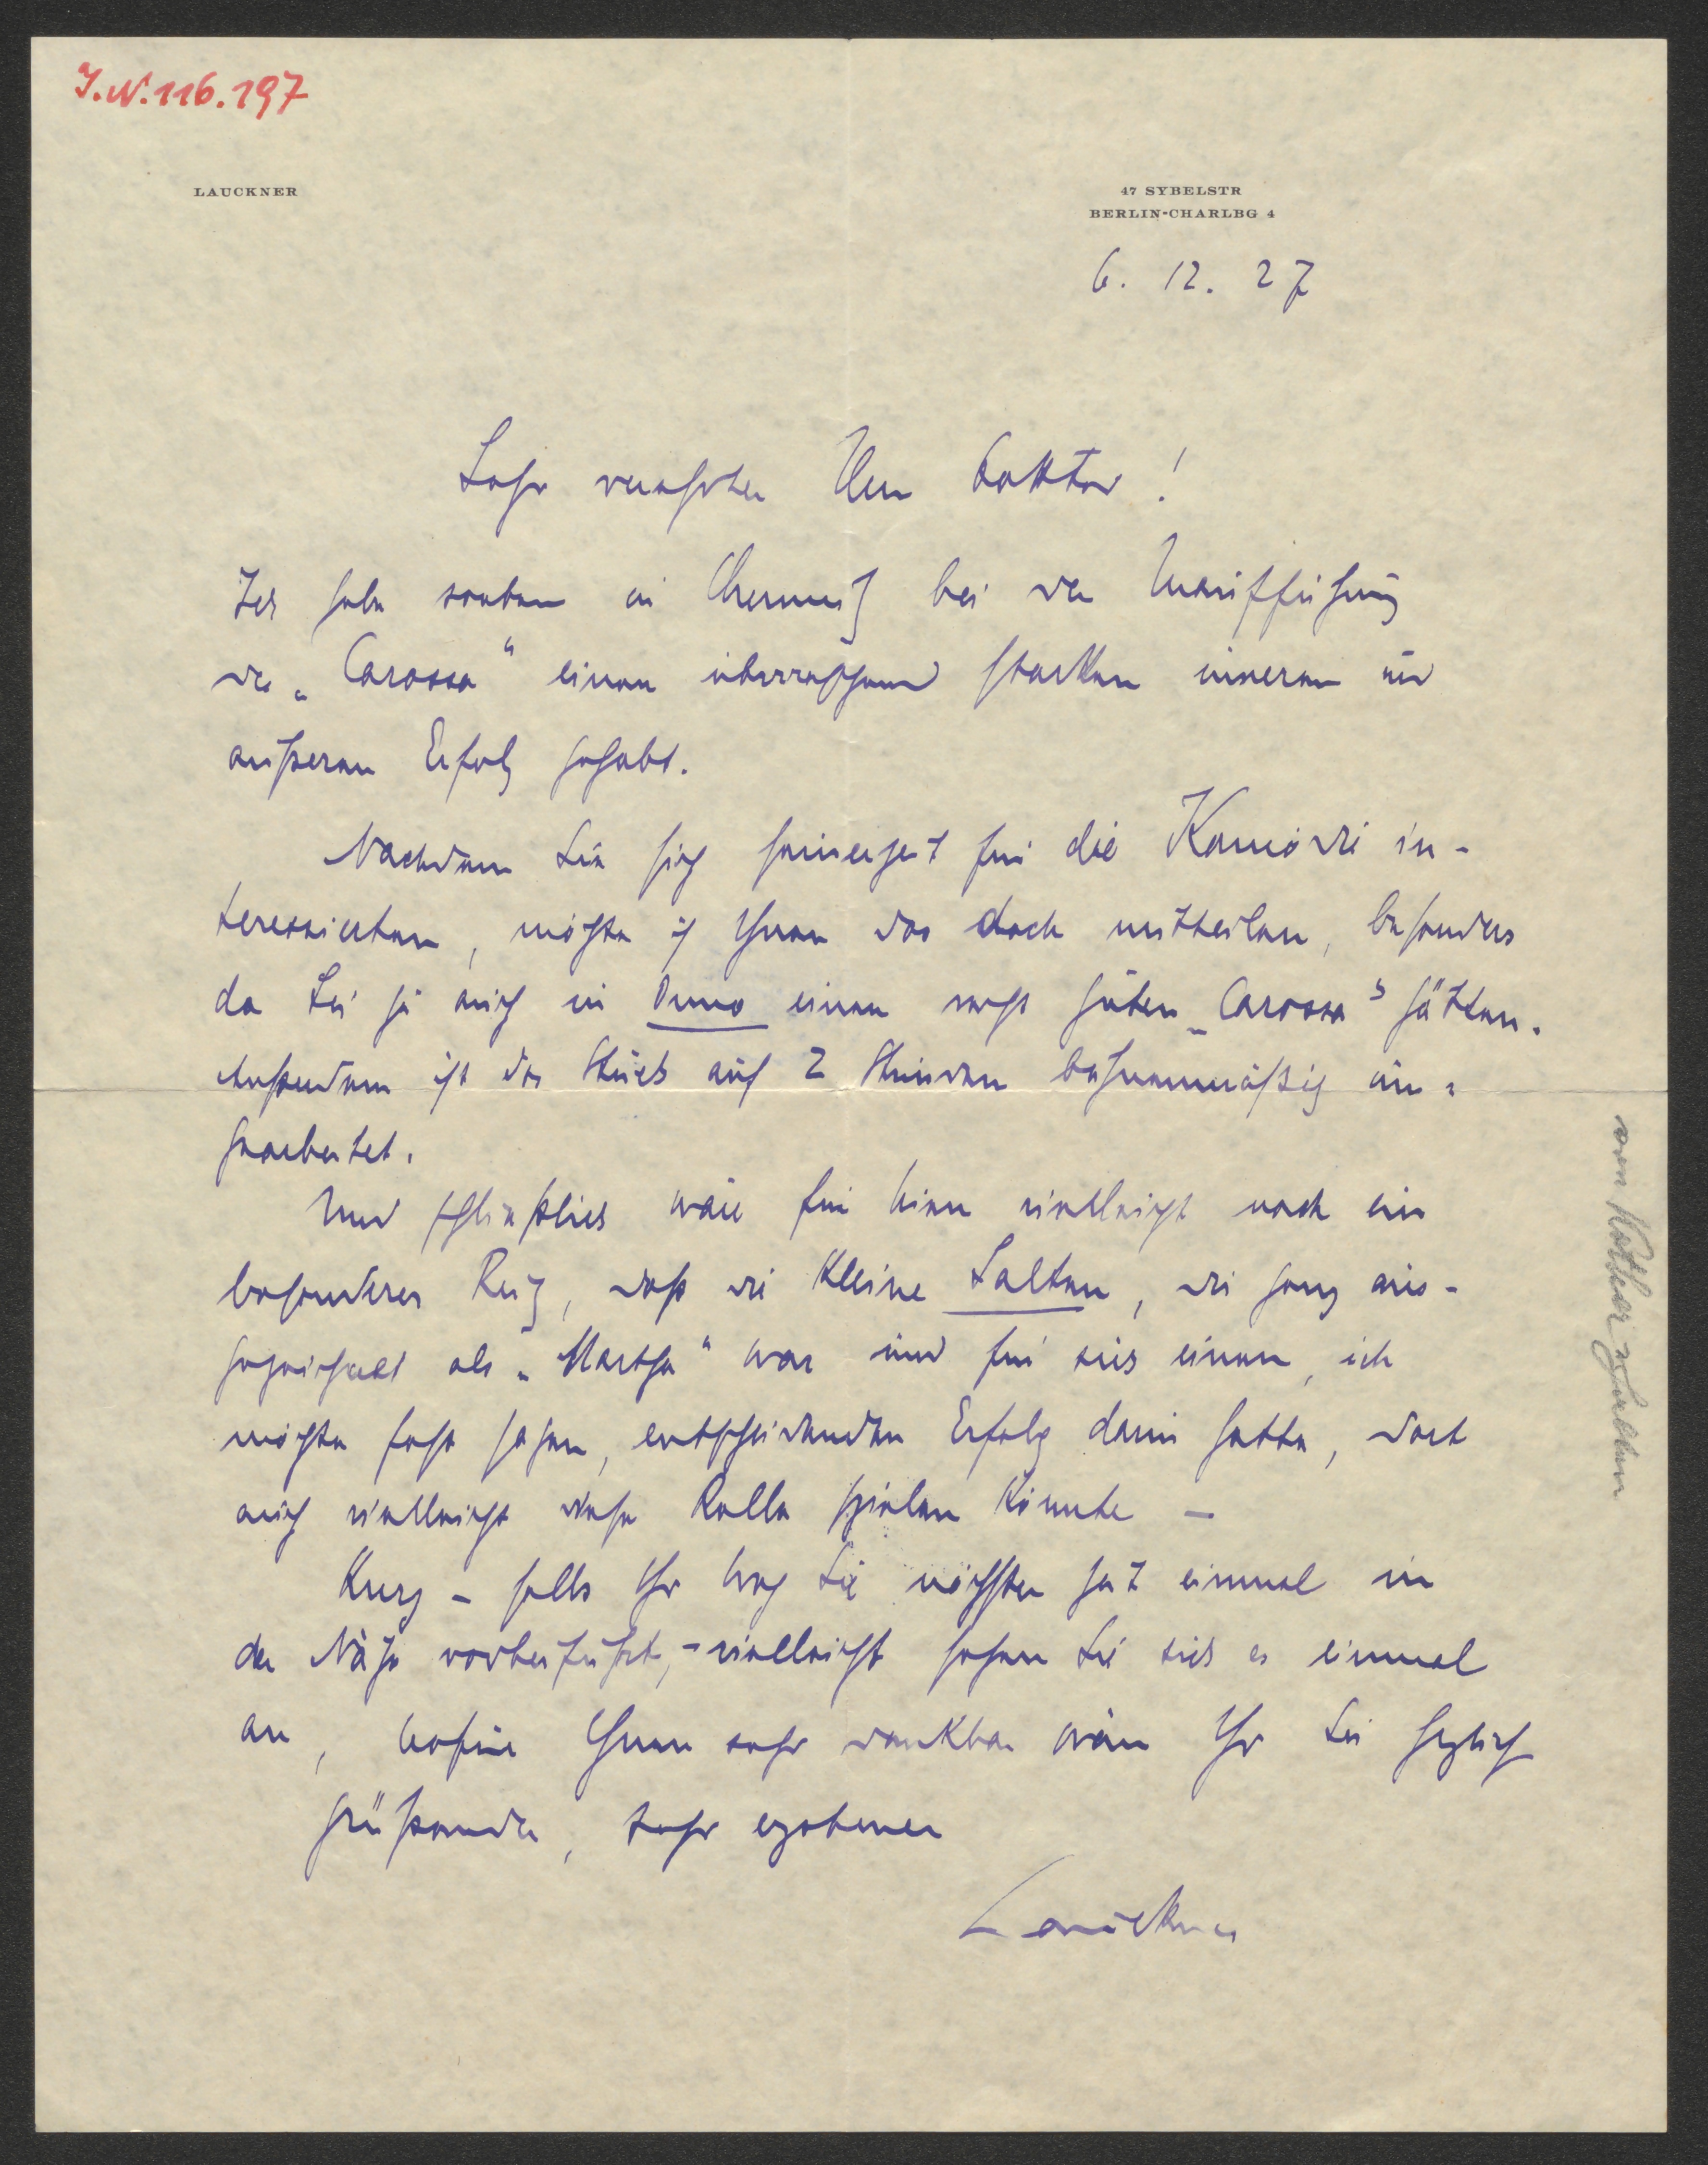 I.N. 116.197
LAUCKNER
47 SYBELSTR
BERLIN-CHARLBG 4
6. 12. 27
Sehr verehrter Herr Doktor!
Ich habe soeben in Chemnitz bei der Uraufführung
der „Carossa“ einen überraschend starken inneren und
äußeren Erfolg gehabt.
Nachdem Sie sich seinerzeit für die Komödie in-
teressierten, möchte ich Ihnen das doch mittheilen, besonders
da Sie ja auch in einen sehr guten „Carossa“ hätten.
Außerdem ist das Stück auf 2 Stunden bühnenmäßig um-
gearbeitet.
Und schließlich wäre für Wien vielleicht noch ein
besonderer Reiz, daß die kleine Salten, die ganz aus-
gezeichnet als „Martha“ war und für sich einen, ich
möchte fast sagen, entscheidenden Erfolg darin hatte, dort
auch vielleicht diese Rolle spielen könnte –
Kurz – falls Ihr Weg Sie nächster Zeit einmal in
der Nähe vorbeiführt, – vielleicht sehen Sie sich es einmal
an, wofür Ihnen sehr dankbar wäre Ihr Sie herzlich
grüßender, sehr ergebener
Lauckner